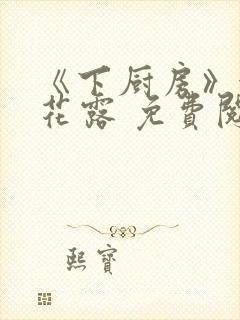 《下厨房》
花露 免費閱
熙寶